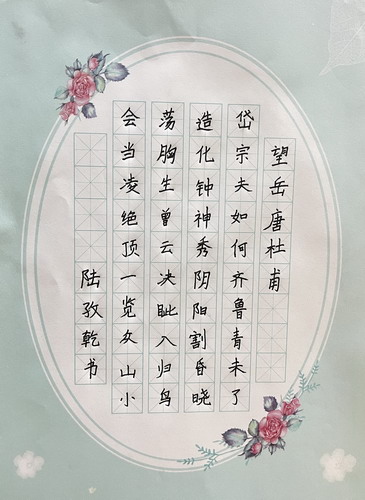 望岳唐杜甫
岱宗夫如何齐鲁青未了
造化钟神秀阴阳割昏晓
荡胸生曾云决眦入归鸟
会当凌绝顶一览众山小
陆孜乾书